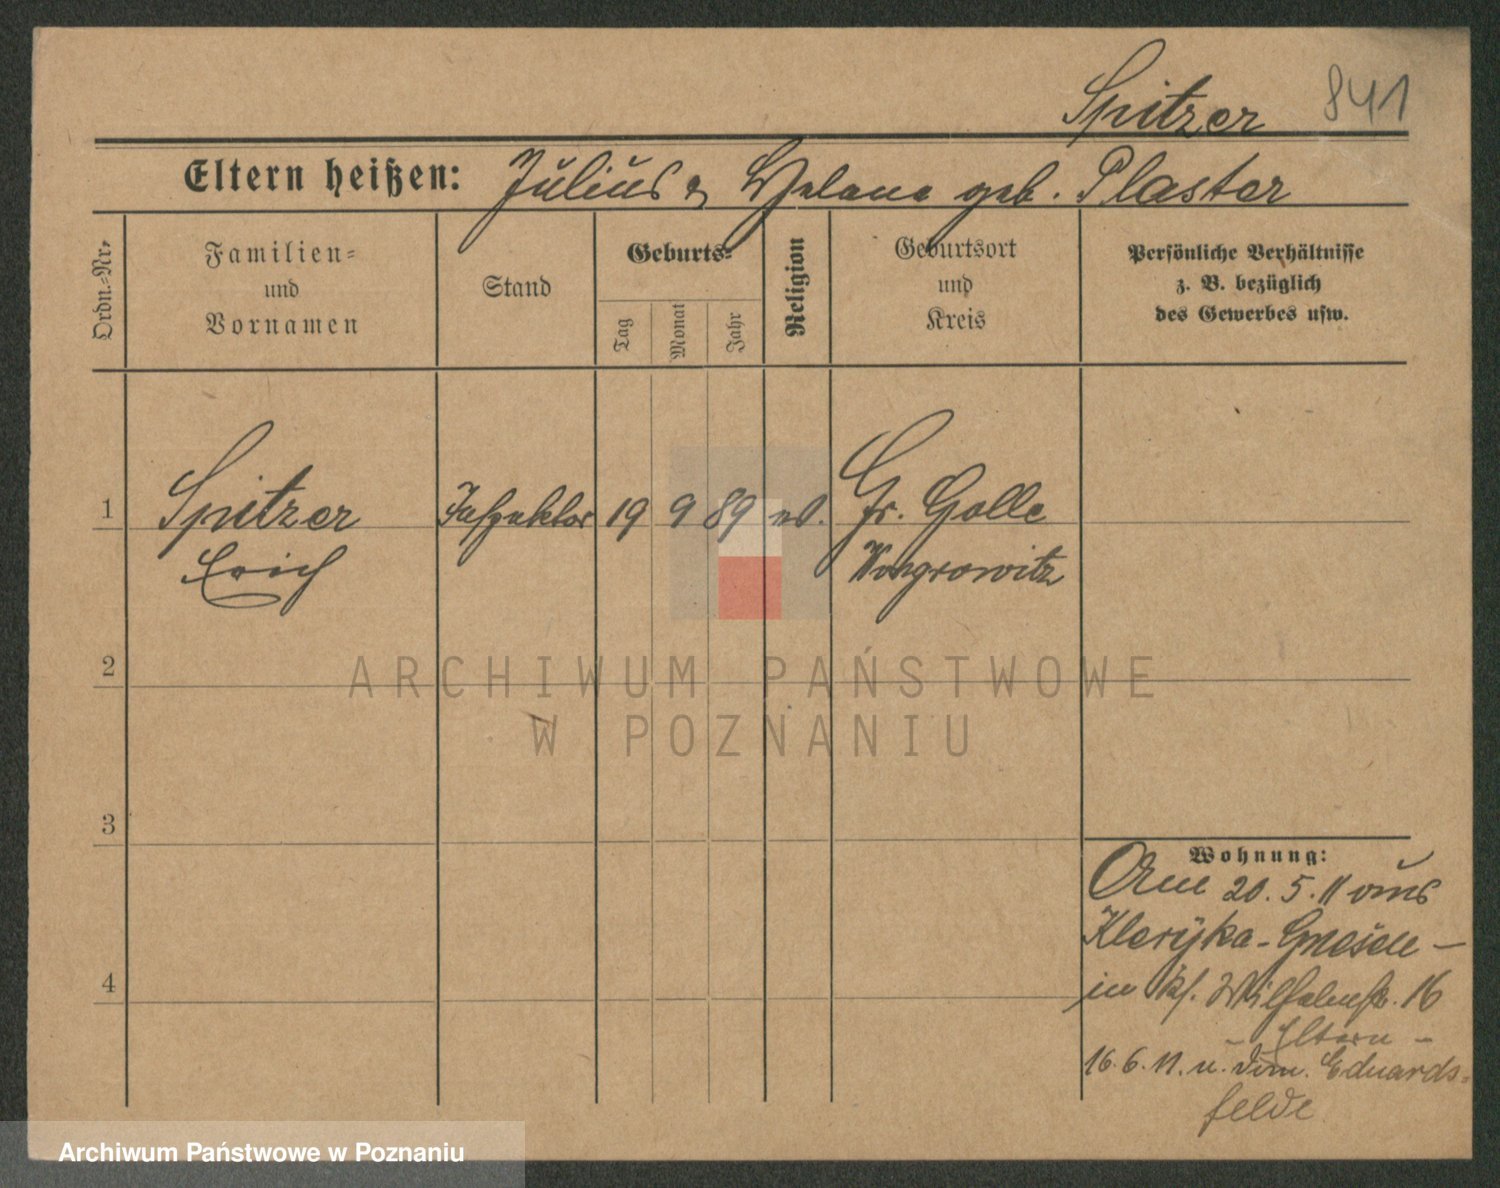 Spitzer 841
Eltern heißen: Julius & Helene geb. Plaster
Ordn.-Nr.
Familien-
und
Vornamen
Stand
Geburts-
Tag
Monat
Jahr
Religion
Geburtsort
und
Kreis
Persönliche Verhältnisse
z. B. bezüglich
des Gewerbes usw.
1 Spitzer Inspektor 19 9 89 Gr. Golle
Erich Wongrowitz
2
ARCHIWUM PAŃSTWOWE
W POZNANIU
3
Wohnung:
Am 20. 5. 11 aus
Kleryka-Gnesen -
4
in Wilhelmstr. 16
- Eltern -
16. 6. 11. n. Dom. Eduards-
felde
Archiwum Państwowe w Poznaniu